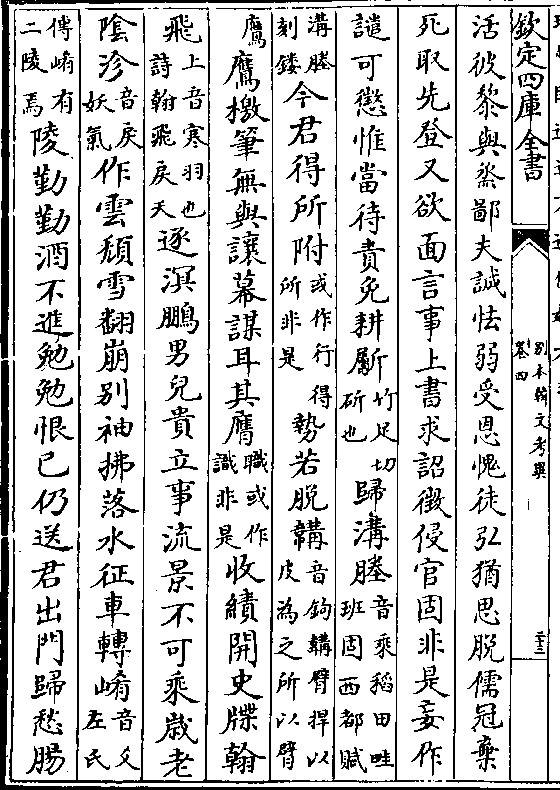 欽定四庫全書
别本韓文考異
卷四
活彼黎與烝鄙夫誠怯弱受恩愧徒弘猶思脱儒冠棄
死取先登又欲面言事上書求詔徵侵官固非是妄作
譴可懲惟當待責免耕劚竹足切斫也歸溝塍音乘稻田畦班固西都賦
溝塍刻鏤今君得所附或作行得所非是勢若脱鞲音鉤鞲臂捍以皮為之所以臂
鷹鷹檄筆無與讓幕謀耳其膺職或作識非是收績開史牒翰
飛上音寒羽也詩翰飛戾天逐溟鵬男兒貴立事流景不可乘歲老
陰沴音戾妖氣作雲頽雪翻崩别袖拂落水征車轉崤音爻左氏
傳崤有二陵焉陵勤勤酒不進勉勉恨已仍送君出門歸愁腸